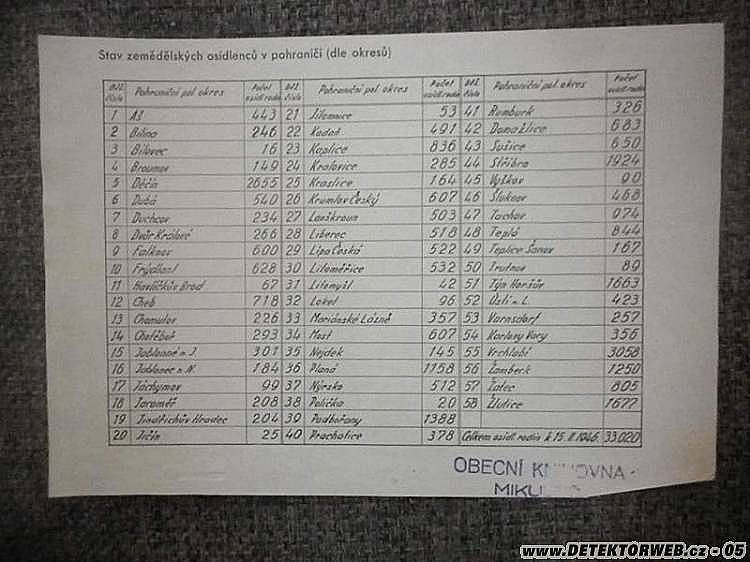 Stav zemědělských osidlenců v pohraničí (dle okresů)
Běž. číslo Pohraniční pol. okres Počet osídl. rodin Běž. číslo Pohraniční pol. okres Počet osídl. rodin Běž. číslo Pohraniční pol. okres Počet osídl. rodin
1 Aš 443 21 Jilemnice 53 41 Rumburk 326
2 Bílina 246 22 Kadaň 491 42 Domažlice 683
3 Bílovec 16 23 Kaplice 836 43 Sušice 650
4 Broumov 149 24 Kralovice 285 44 Stříbro 1924
5 Děčín 2655 25 Kraslice 164 45 Vyškov 90
6 Dubá 540 26 Krumlov Český 607 46 Šluknov 468
7 Duchcov 234 27 Lanškroun 503 47 Tachov 974
8 Dvůr Králové 266 28 Liberec 518 48 Teplá 844
9 Falknov 600 29 Lípa Česká 522 49 Teplice Šanov 167
10 Frýdlant 628 30 Litoměřice 532 50 Trutnov 89
11 Havlíčkův Brod 67 31 Litomyšl 42 51 Týn Horšův 1663
12 Cheb 718 32 Loket 96 52 Ústí n. L. 423
13 Chomutov 226 33 Mariánské Lázně 357 53 Varnsdorf 257
14 Chotěboř 293 34 Most 607 54 Karlovy Vary 356
15 Jablonné n. J. 301 35 Nejdek 145 55 Vrchlabí 3058
16 Jablonec n. N. 184 36 Planá 1158 56 Žamberk 1250
17 Jáchymov 99 37 Nýrsko 512 57 Žatec 805
18 Jaroměř 208 38 Polička 20 58 Žlutice 1677
19 Jindřichův Hradec 204 39 Podbořany 1388
20 Jičín 25 40 Prachatice 378 Celkem osídl. rodin k 15. II. 1946. 33.020
OBECNÍ
www.DETEKTORWEB.cz - 05